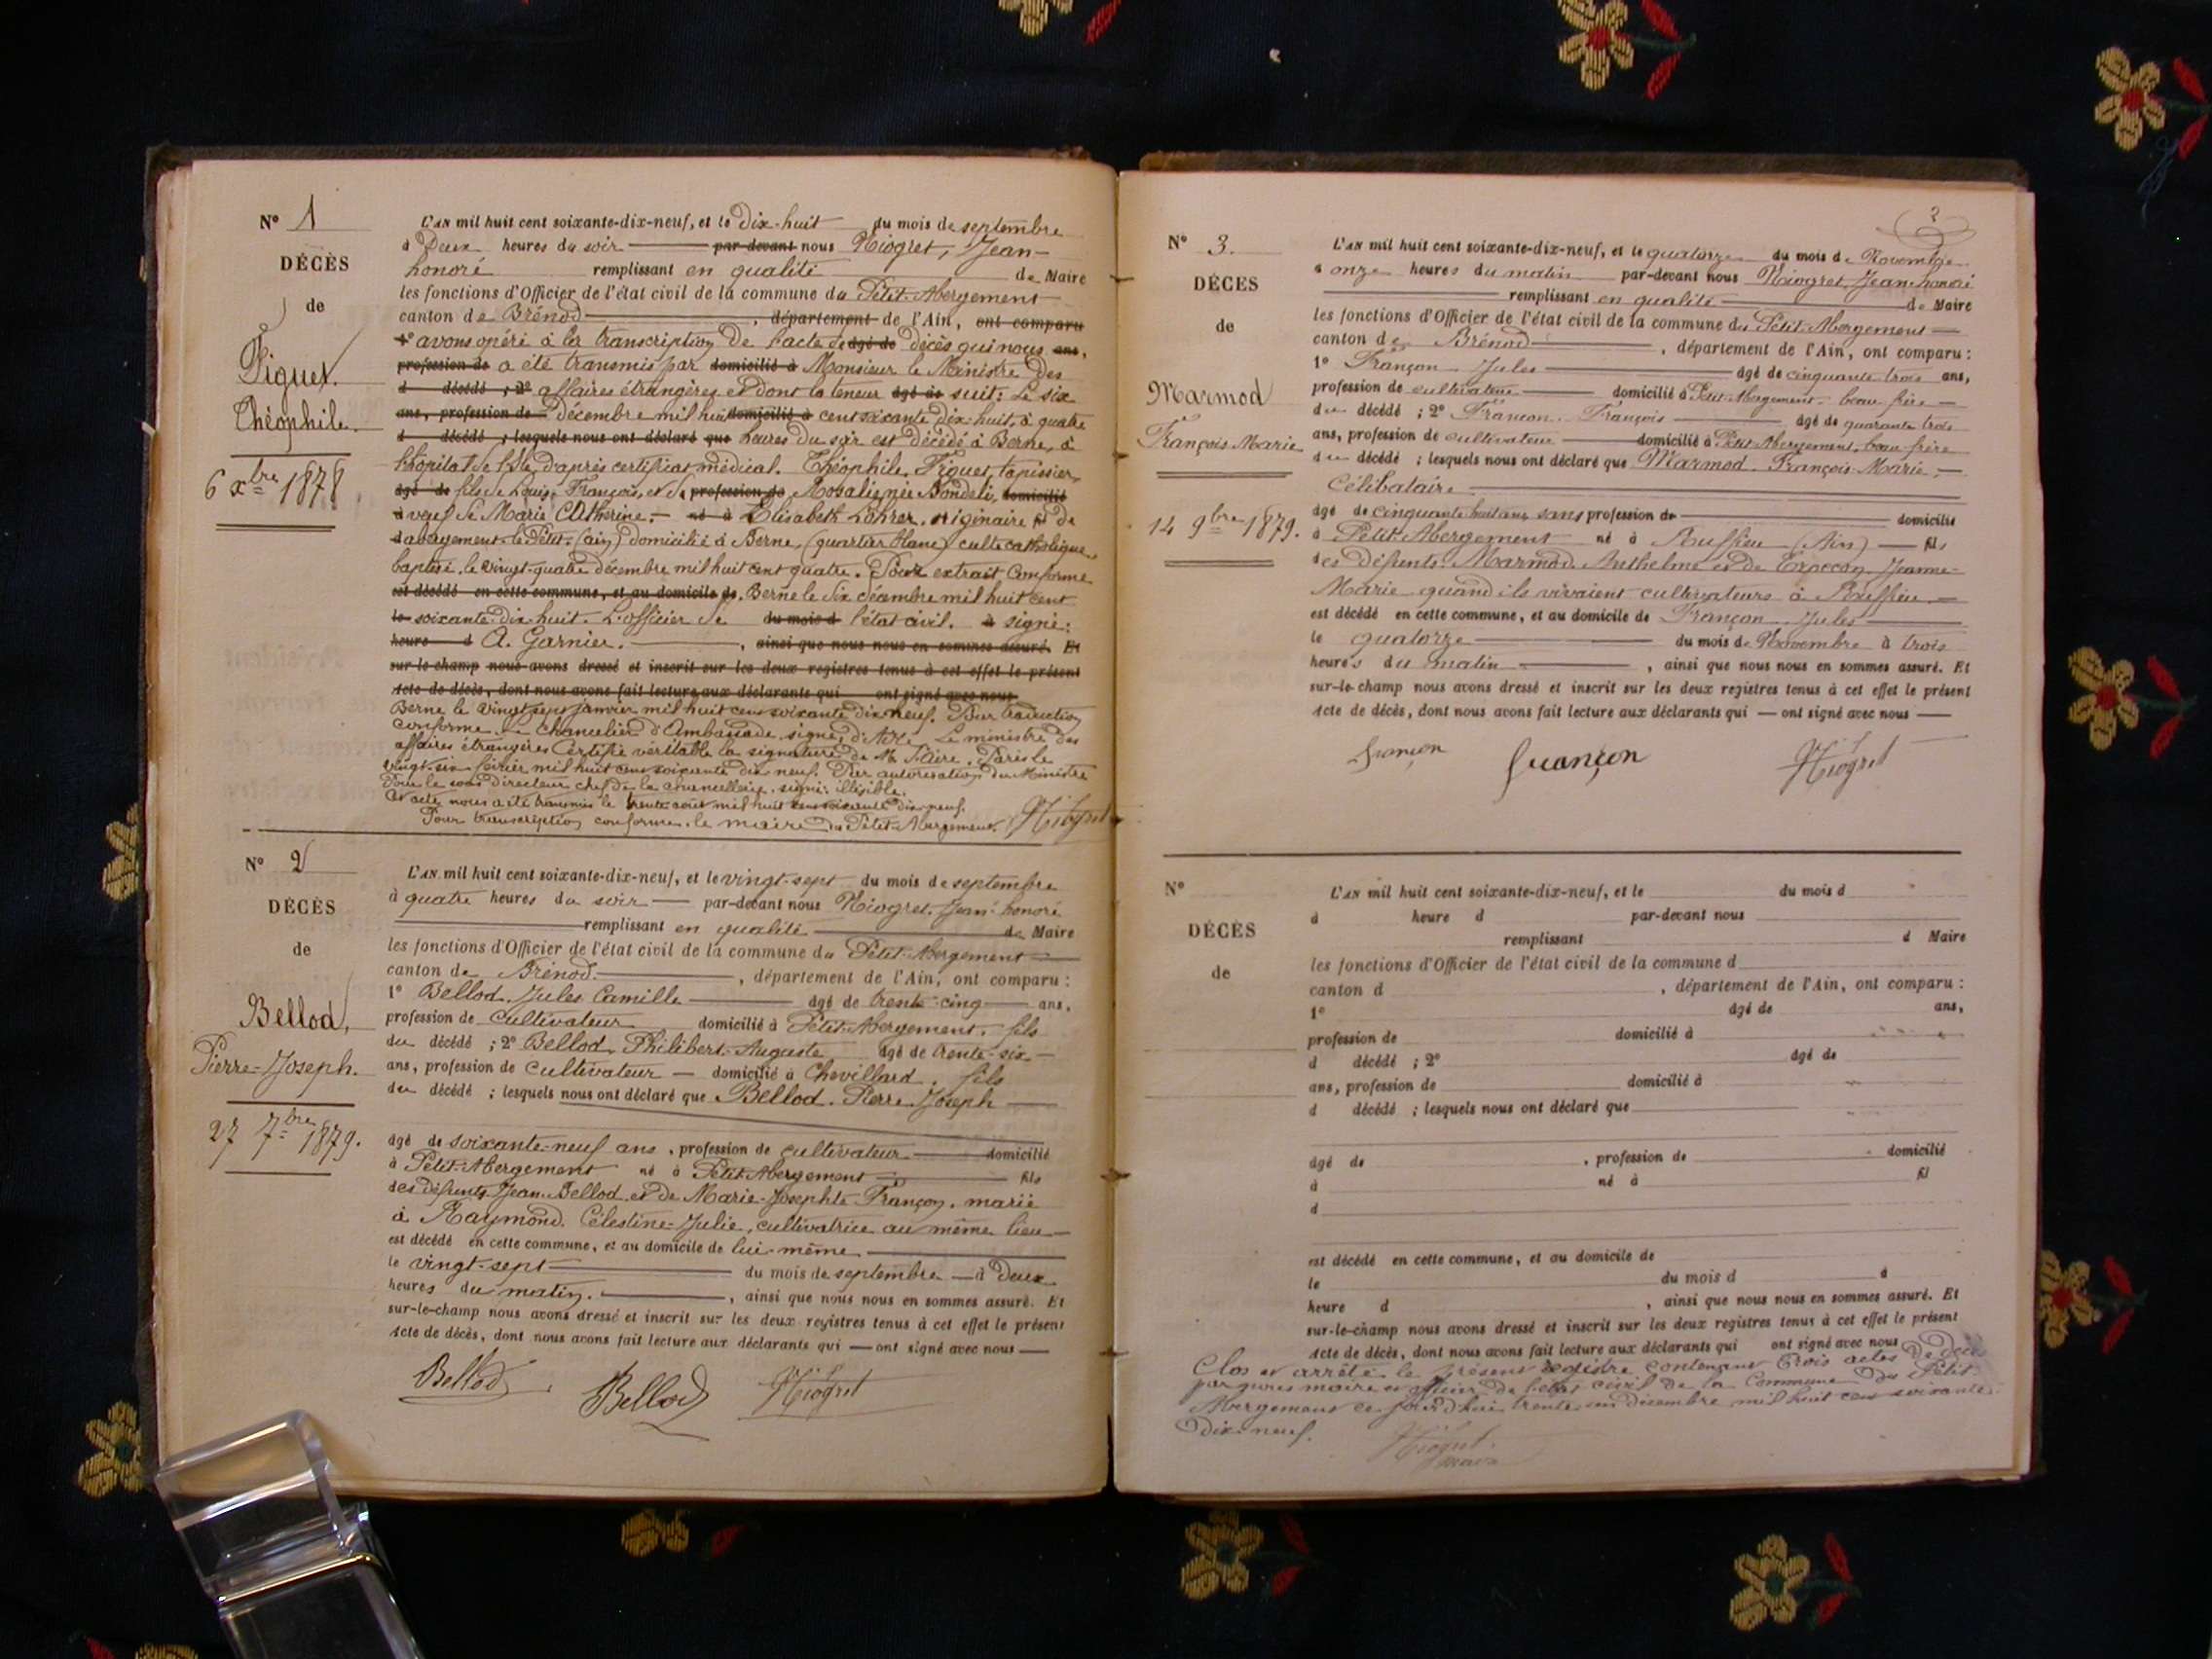 N° 1
DÉCÈS
de
Figuet.
Théophile.
6 xbre 1878
L'AN mil huit cent soixante-dix-neuf, et le Dix-huit du mois de septembre
à Deux heures du soir par-devant nous Niogret, Jean-
honoré remplissant en qualité de Maire
les fonctions d'Officier de l'état civil de la commune du Petit-Abergement
canton de Brénod, département de l'Ain, ont comparu
1° avons opéré à la transcription de l'acte de âgé de décès qui nous ans,
profession de a été transmis par domicilié à Monsieur le Ministre des
d décédé ; 2° affaires étrangères et dont la teneur âgé de suit : Le six
ans, profession de Décembre mil huit domicilié à cent soixante Dix-huit, à quatre
d décédé ; lesquels nous ont déclaré que heures du soir est décédé à Berne, à
l'hôpital de l'Isle, d'après certificat médical. Théophile, Figuet, tapissier,
âgé de fils de Louis, François, et de profession de Rosalie née domicilié
à veuf de Marie Catherine, né à Elisabeth Löhrer, originaire fil de
d abergement-le-Petit (ain) domicilié à Berne, (quartier blanc) culte catholique,
baptisé, le vingt-quatre décembre mil huit cent quatre. Pour extrait Conforme
est décédé en cette commune, et au domicile de Berne le Six décembre mil huit cent
le soixante-dix-huit. L'officier de du mois d l'état civil. à signé :
heure d A. Garnier. , ainsi que nous nous en sommes assuré. Et
sur-le-champ nous avons dressé et inscrit sur les deux registres tenus à cet effet le présent
Acte de décès, dont nous avons fait lecture aux déclarants qui ont signé avec nous
Berne le vingt sept janvier mil huit cent soixante dix-neuf. Pour traduction
conforme. Le Chancelier d'Ambassade, signé, Le ministre des
affaires étrangères Certifie véritable la signature de M. Paris le
vingt-six février mil huit cent soixante dix neuf. Par autorisation du Ministre
Pour le sous directeur chef de la chancellerie, signé : illisible.
Cet acte nous a été transmis le trente août mil huit cent soixante dix-neuf.
Pour transcription conforme. le maire du Petit-Abergement. Niogret
N° 2
DÉCÈS
de
Bellod,
Pierre-Joseph.
27 7bre 1879.
L'AN mil huit cent soixante-dix-neuf, et le vingt-sept du mois de septembre
à quatre heures du soir par-devant nous Niogret, Jean-honoré
remplissant en qualité de Maire
les fonctions d'Officier de l'état civil de la commune du Petit-Abergement
canton de Brénod. , département de l'Ain, ont comparu :
1° Bellod, Jules Camille âgé de trente-cinq ans,
profession de cultivateur domicilié à Petit-Abergement. fils
du décédé ; 2° Bellod, Philibert-Auguste âgé de trente-six
ans, profession de cultivateur domicilié à Chevillard. fils
du décédé ; lesquels nous ont déclaré que Bellod, Pierre-Joseph
âgé de soixante-neuf ans , profession de cultivateur domicilié
à Petit-Abergement né à Petit-Abergement fils
des défunts Jean-Bellod, et de Marie-Josephte Françon, marié
à Raymond Célestine-Julie, cultivatrice au même lieu
est décédé en cette commune, et au domicile de lui-même
le vingt-sept du mois de septembre à Deux
heures du matin. , ainsi que nous nous en sommes assuré. Et
sur-le-champ nous avons dressé et inscrit sur les deux registres tenus à cet effet le présent
Acte de décès, dont nous avons fait lecture aux déclarants qui ont signé avec nous
Bellod Bellod Niogret
2
N° 3.
DÉCÈS
de
Marmod
François-Marie
14 9bre 1879.
L'AN mil huit cent soixante-dix-neuf, et le quatorze du mois de Novembre
à onze heures du matin par-devant nous Niogret, Jean-honoré
remplissant en qualité de Maire
les fonctions d'Officier de l'état civil de la commune du Petit-Abergement
canton de Brénod , département de l'Ain, ont comparu :
1° Françon Jules âgé de cinquante trois ans,
profession de cultivateur domicilié à Petit-Abergement. beau frère
du décédé ; 2° Françon. François âgé de quarante trois
ans, profession de cultivateur domicilié à Petit-Abergement. beau frère
du décédé ; lesquels nous ont déclaré que Marmod François-Marie,
Célibataire
âgé de cinquante huit ans sans profession de domicilié
à Petit-Abergement né à Ruffieu (Ain) fils
des défunts Marmod Anthelme et de Jeanne-
Marie quand ils vivaient cultivateurs à Ruffieu
est décédé en cette commune, et au domicile de Françon Jules
le quatorze du mois de Novembre à trois
heures du matin , ainsi que nous nous en sommes assuré. Et
sur-le-champ nous avons dressé et inscrit sur les deux registres tenus à cet effet le présent
Acte de décès, dont nous avons fait lecture aux déclarants qui ont signé avec nous
françon françon Niogret
N°
DÉCÈS
de
L'AN mil huit cent soixante-dix-neuf, et le du mois d
à heure d par-devant nous
remplissant d Maire
les fonctions d'Officier de l'état civil de la commune d
canton d , département de l'Ain, ont comparu :
1° âgé de ans,
profession de domicilié à
d décédé ; 2° âgé de
ans, profession de domicilié à
d décédé ; lesquels nous ont déclaré que
âgé de , profession de domicilié
à né à fil
d
est décédé en cette commune, et au domicile de
le du mois d à
heure d , ainsi que nous nous en sommes assuré. Et
sur-le-champ nous avons dressé et inscrit sur les deux registres tenus à cet effet le présent
Acte de décès, dont nous avons fait lecture aux déclarants qui ont signé avec nous
Clos et arrêté le présent registre contenant trois actes de décès
par nous maire et officier de l'état civil de la Commune du Petit-
Abergement ce jourd'hui trente un décembre mil huit cent soixante
Dix-neuf. Niogret
maire